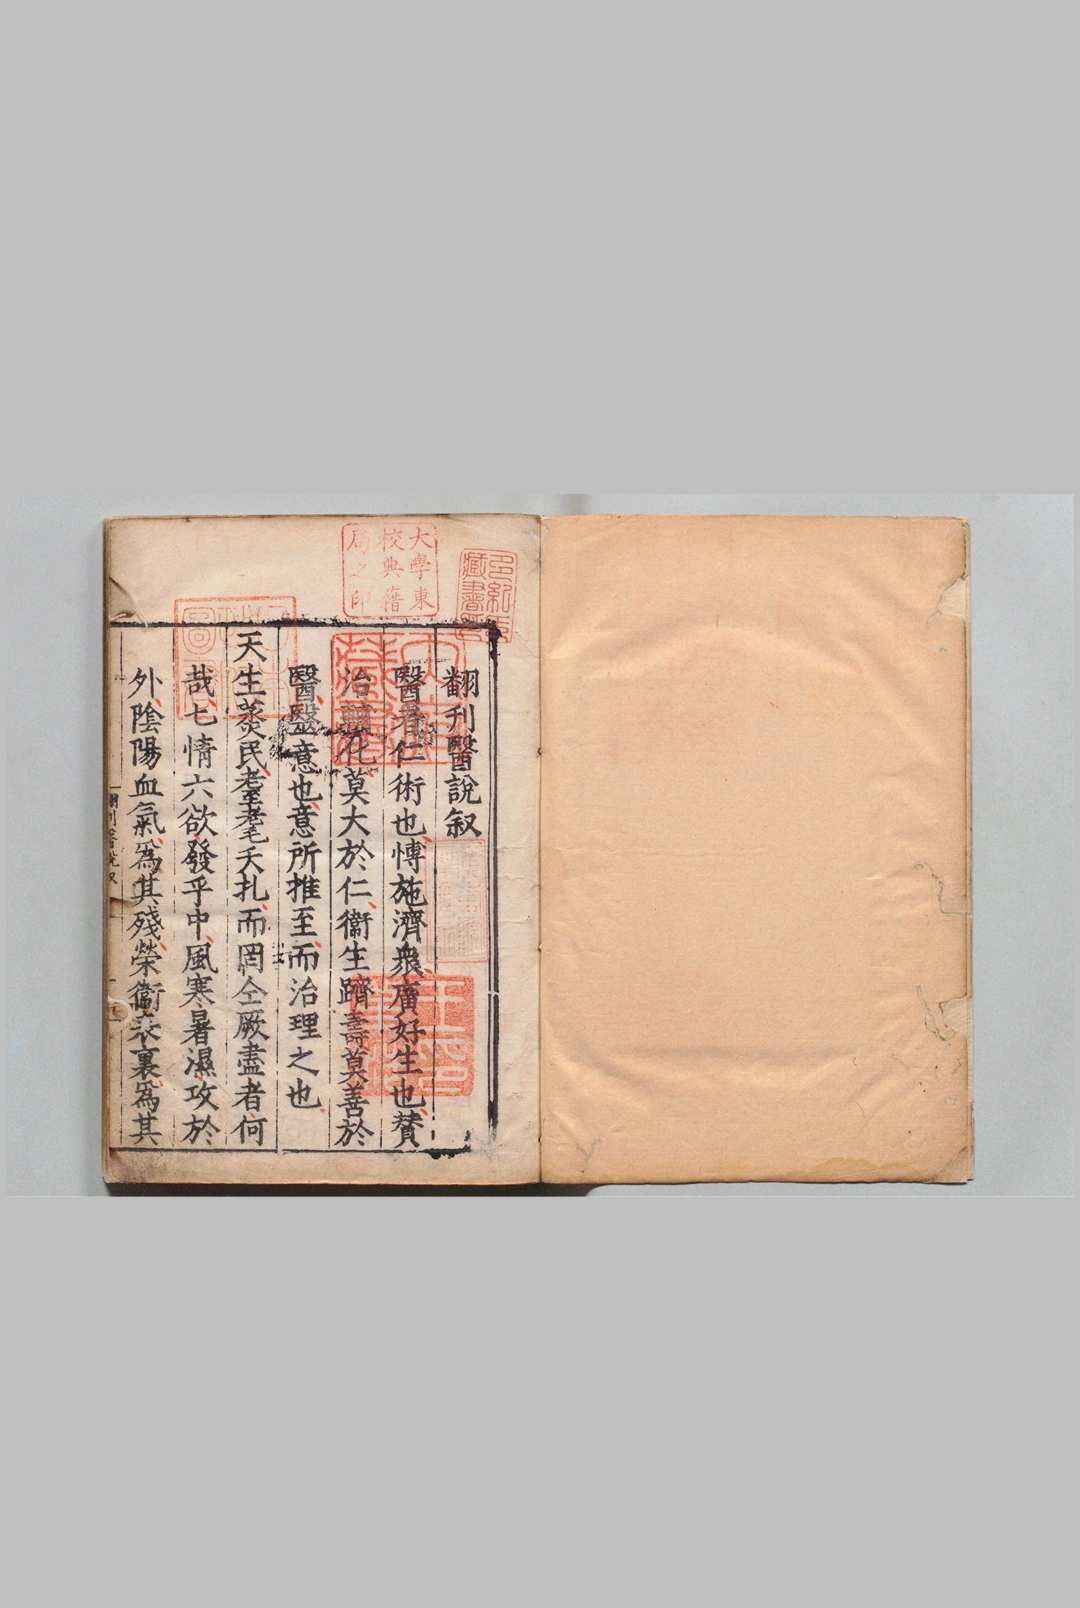 翻刊醫說叙
醫者仁術也愽施濟衆廣好生也賛
治化莫大於仁衞生躋壽莫善於
醫醫意也意所推至而治理之也
天生蒸民耋耄夭扎而罔仝厥盡者何
哉七情六欲發乎中風寒暑濕攻於
外陰陽血氣為其殘榮衞表裏為其
大學東
校典籍
局之印
多紀氏
藏書印